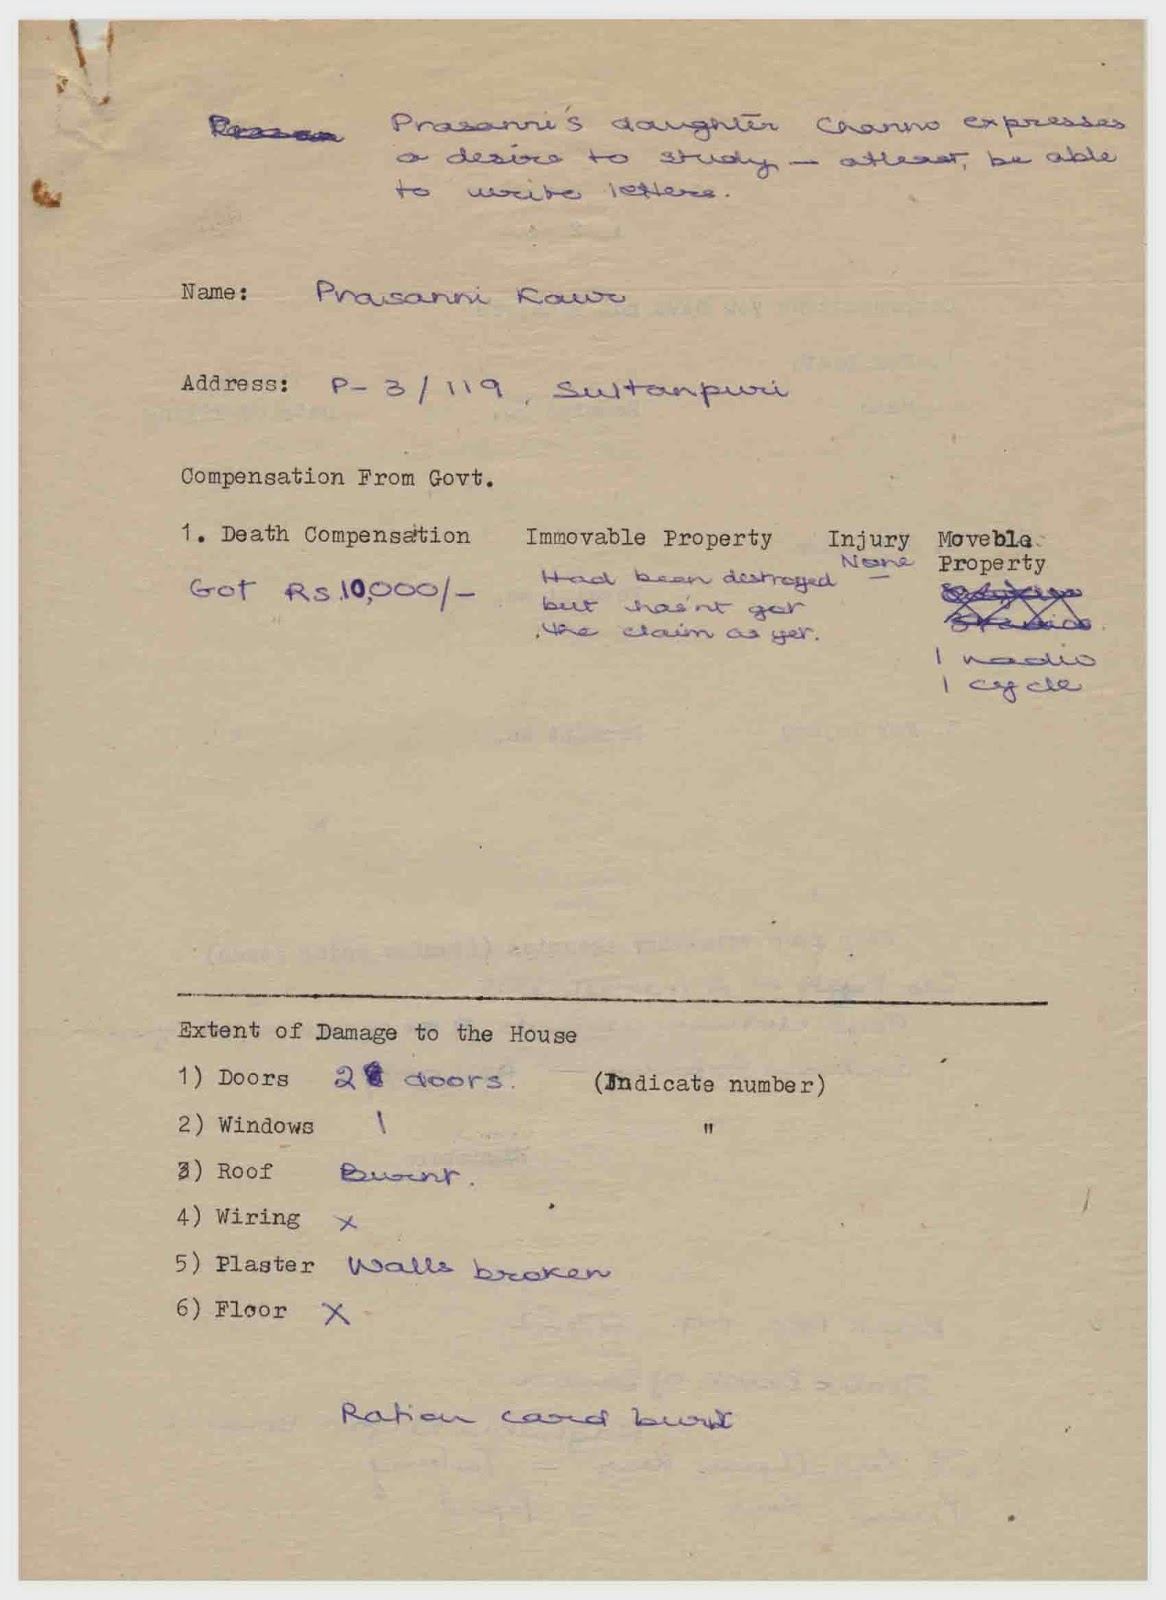 Prasanni's daughter Channo expresses
a desire to study — atleast, be able
to write letters.
Name: Prasanni Kaur
Address: P-3/119, Sultanpuri
Compensation From Govt.
1. Death Compensation Immovable Property Injury Moveble
Property
Got Rs.10,000/-
Had been destroyed
but has'nt got
the claim as yet.
None
1 radio
1 cycle
Extent of Damage to the House
1) Doors 2 doors. (Indicate number)
2) Windows 1 "
3) Roof Burnt.
4) Wiring x
5) Plaster Walls broken
6) Floor X
Ration card burnt